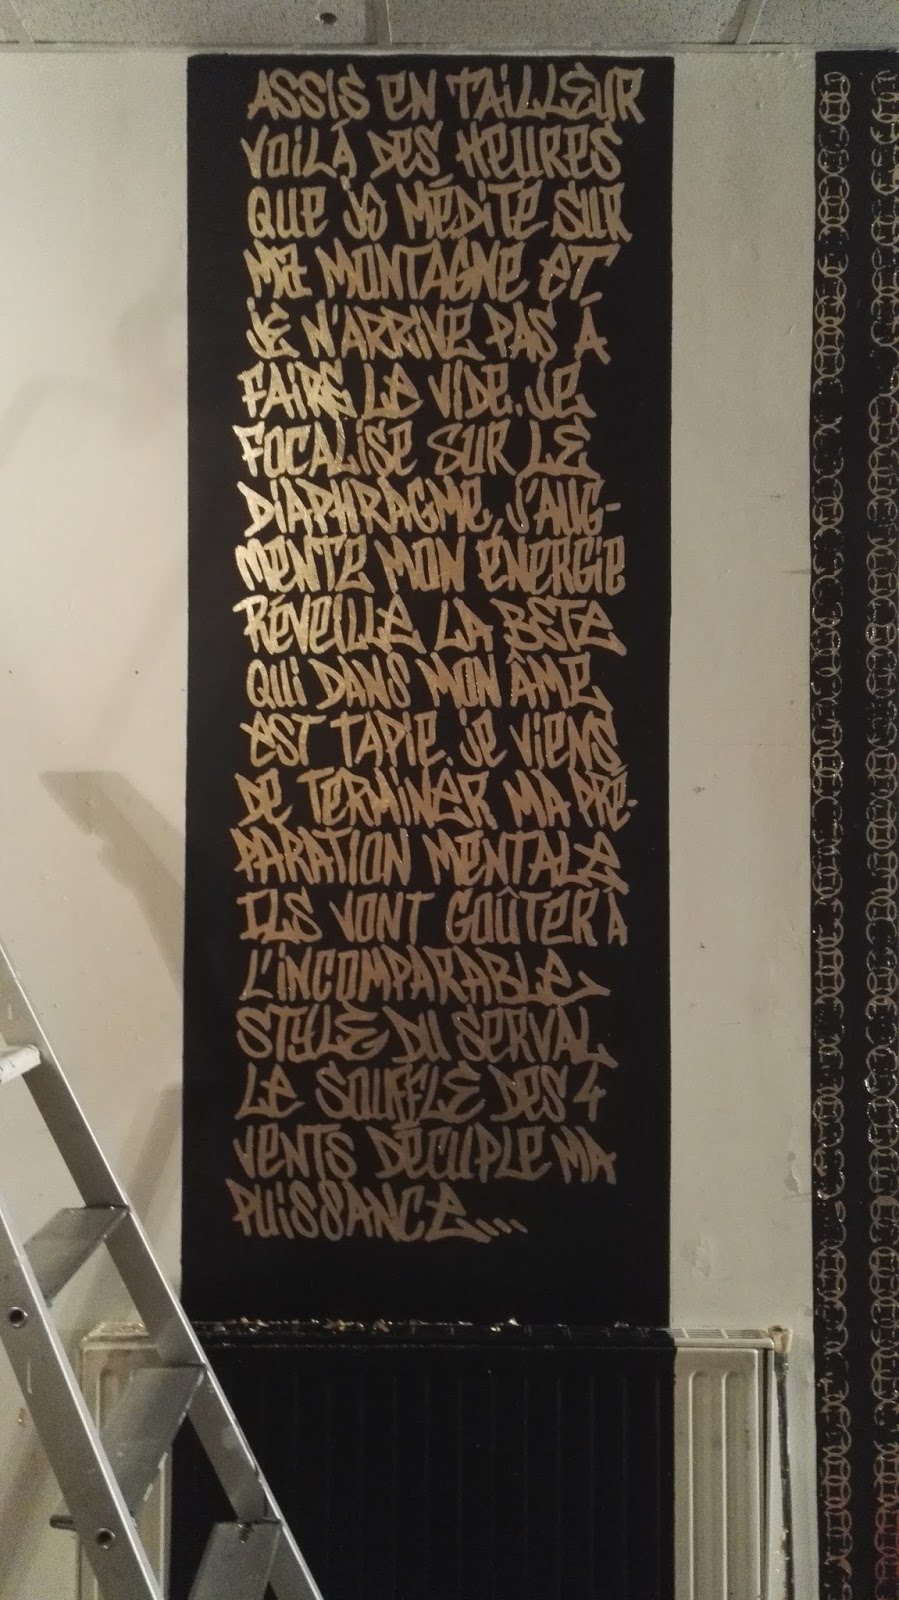 ASSIS EN TAILLEUR
VOILÀ DES HEURES
QUE JE MÉDITE SUR
MA MONTAGNE ET
JE N'ARRIVE PAS À
FAIRE LE VIDE. JE
FOCALISE SUR LE
DIAPHRAGME, J'AUG-
MENTE MON ÉNERGIE
RÉVEILLE LA BÊTE
QUI DANS MON ÂME
EST TAPIE. JE VIENS
DE TERMINER MA PRÉ-
PARATION MENTALE
ILS VONT GOÛTER À
L'INCOMPARABLE
STYLE DU SERVAL
LE SOUFFLE DES 4
VENTS DÉCUPLE MA
PUISSANCE...